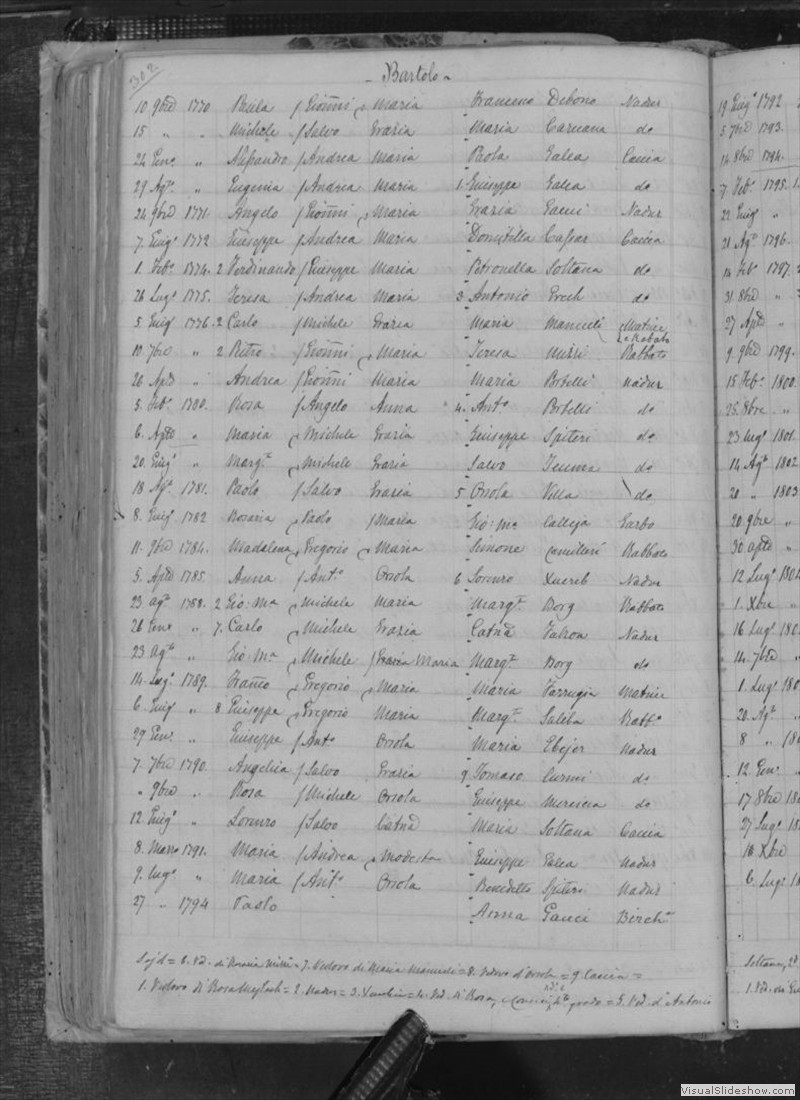 302.
- Bartolo -
10 9bre 1770 Paula / Gioñni Maria Francesco Debono Nadur
15 " " Michele / Salvo Grazia Maria Caruana do
24 Gen° " Alessandro / Andrea Maria Paola Galea Caccia
29 Ag° " Eugenia / Andrea Maria 1. Giuseppe Galea do
24 9bre 1771. Angelo / Gioñni Maria Grazia Gauci Nadur
7. Giug° 1772 Giuseppe / Andrea Maria Domitilla Cassar Caccia
1. Feb° 1774. 2 Ferdinando / Giuseppe Maria Petronella Soltana do
26 Lug° 1775. Teresa / Andrea Maria 3. Antonio Grech do
5 Giug° 1776. 2 Carlo / Michele Grazia Maria Mamueli Matrice e Rabato
10. 7bre " 2 Pietro / Gioñni Maria Teresa Mizzi Rabbato
26 Aple " Andrea / Gioñni Maria Maria Botelli Nadur
5. Feb° 1780. Rosa / Angelo Anna 4. Ant° Botelli do
6. Aple " Maria Michele Grazia Giuseppe Spiteri do
20. Giug° " Marg.ta Michele Grazia Salvo Teuma do
18 Ag° 1781. Paolo / Salvo Grazia 5 Orsola Villa do
8. Giug° 1782 Rosaria Paolo / Maria Gio: Ma Calleja Garbo
11. 9bre 1784. Madalena Gregorio Maria Simone Camilleri Rabbato
5. Aple 1785. Anna / Ant° Orsola 6 Lorenzo Xuereb Nadur
23 ag° 1788. 2 Gio: Ma Michele Maria Marg.ta Borg Rabbato
26 Gen° 7. Carlo Michele Grazia Catna Falzon Nadur
23 ag° " Gio: Ma Michele / Grazia Maria Marg.ta Borg do
14. Lug° 1789. Franco Gregorio Maria Maria Farrugia Matrice
6. Giug° " 8 Giuseppe Gregorio Maria Marg.ta Saliba Rabb°
29 Gen° " Giuseppe / Ant° Orsola Maria Ebejer Nadur
7. 7bre 1790. Angelica / Salvo Grazia 9 Tomaso Curmi do
" 9bre " Rosa / Michele Orsola Giuseppe Mercieca do
12 Giug° " Lorenzo / Salvo Catna Maria Soltana Caccia
8. Marzo 1791. Maria / Andrea Modesta Giuseppe Galea Nadur
9. Lug° " Maria / Ant° Orsola Benedetto Spiteri Nadur
27 " 1794 Paolo Anna Gauci Birch°
= 6. Ved. di Rosaria Mizzi = 7. Vedovo di Maria Mamueli = 8. Vedovo d'Orsola = 9. Caccia =
1. Vedovo di Rosa = 2. Nadur = 3. = 4. Ved. di Rosa, e grado = 5. Ved. d'Antonio
19 Giug° 1792
5 7bre 1793.
14 8bre 1794.
Feb° 1795.
22 Giug° "
21 Ag° 1796.
14 Feb° 1797.
31. 8bre "
27 Aple "
9. 9bre 1799.
15 Feb° 1800.
25. 8bre "
23. Lug° 1801.
14. Ag° 1802
20 " 1803
20. 9bre "
30 aple "
12 Lug° 1804
1. Xbre "
16 Lug° 180
14. 7bre "
1. Lug° 180
20. Ag° "
8 " 18
12. Gen° "
17 8bre 18
27 Lug° 18
18 Xbre
6. Lug° 18
Soltana, 2d
1. Ved. di
VisualSlideshow.com